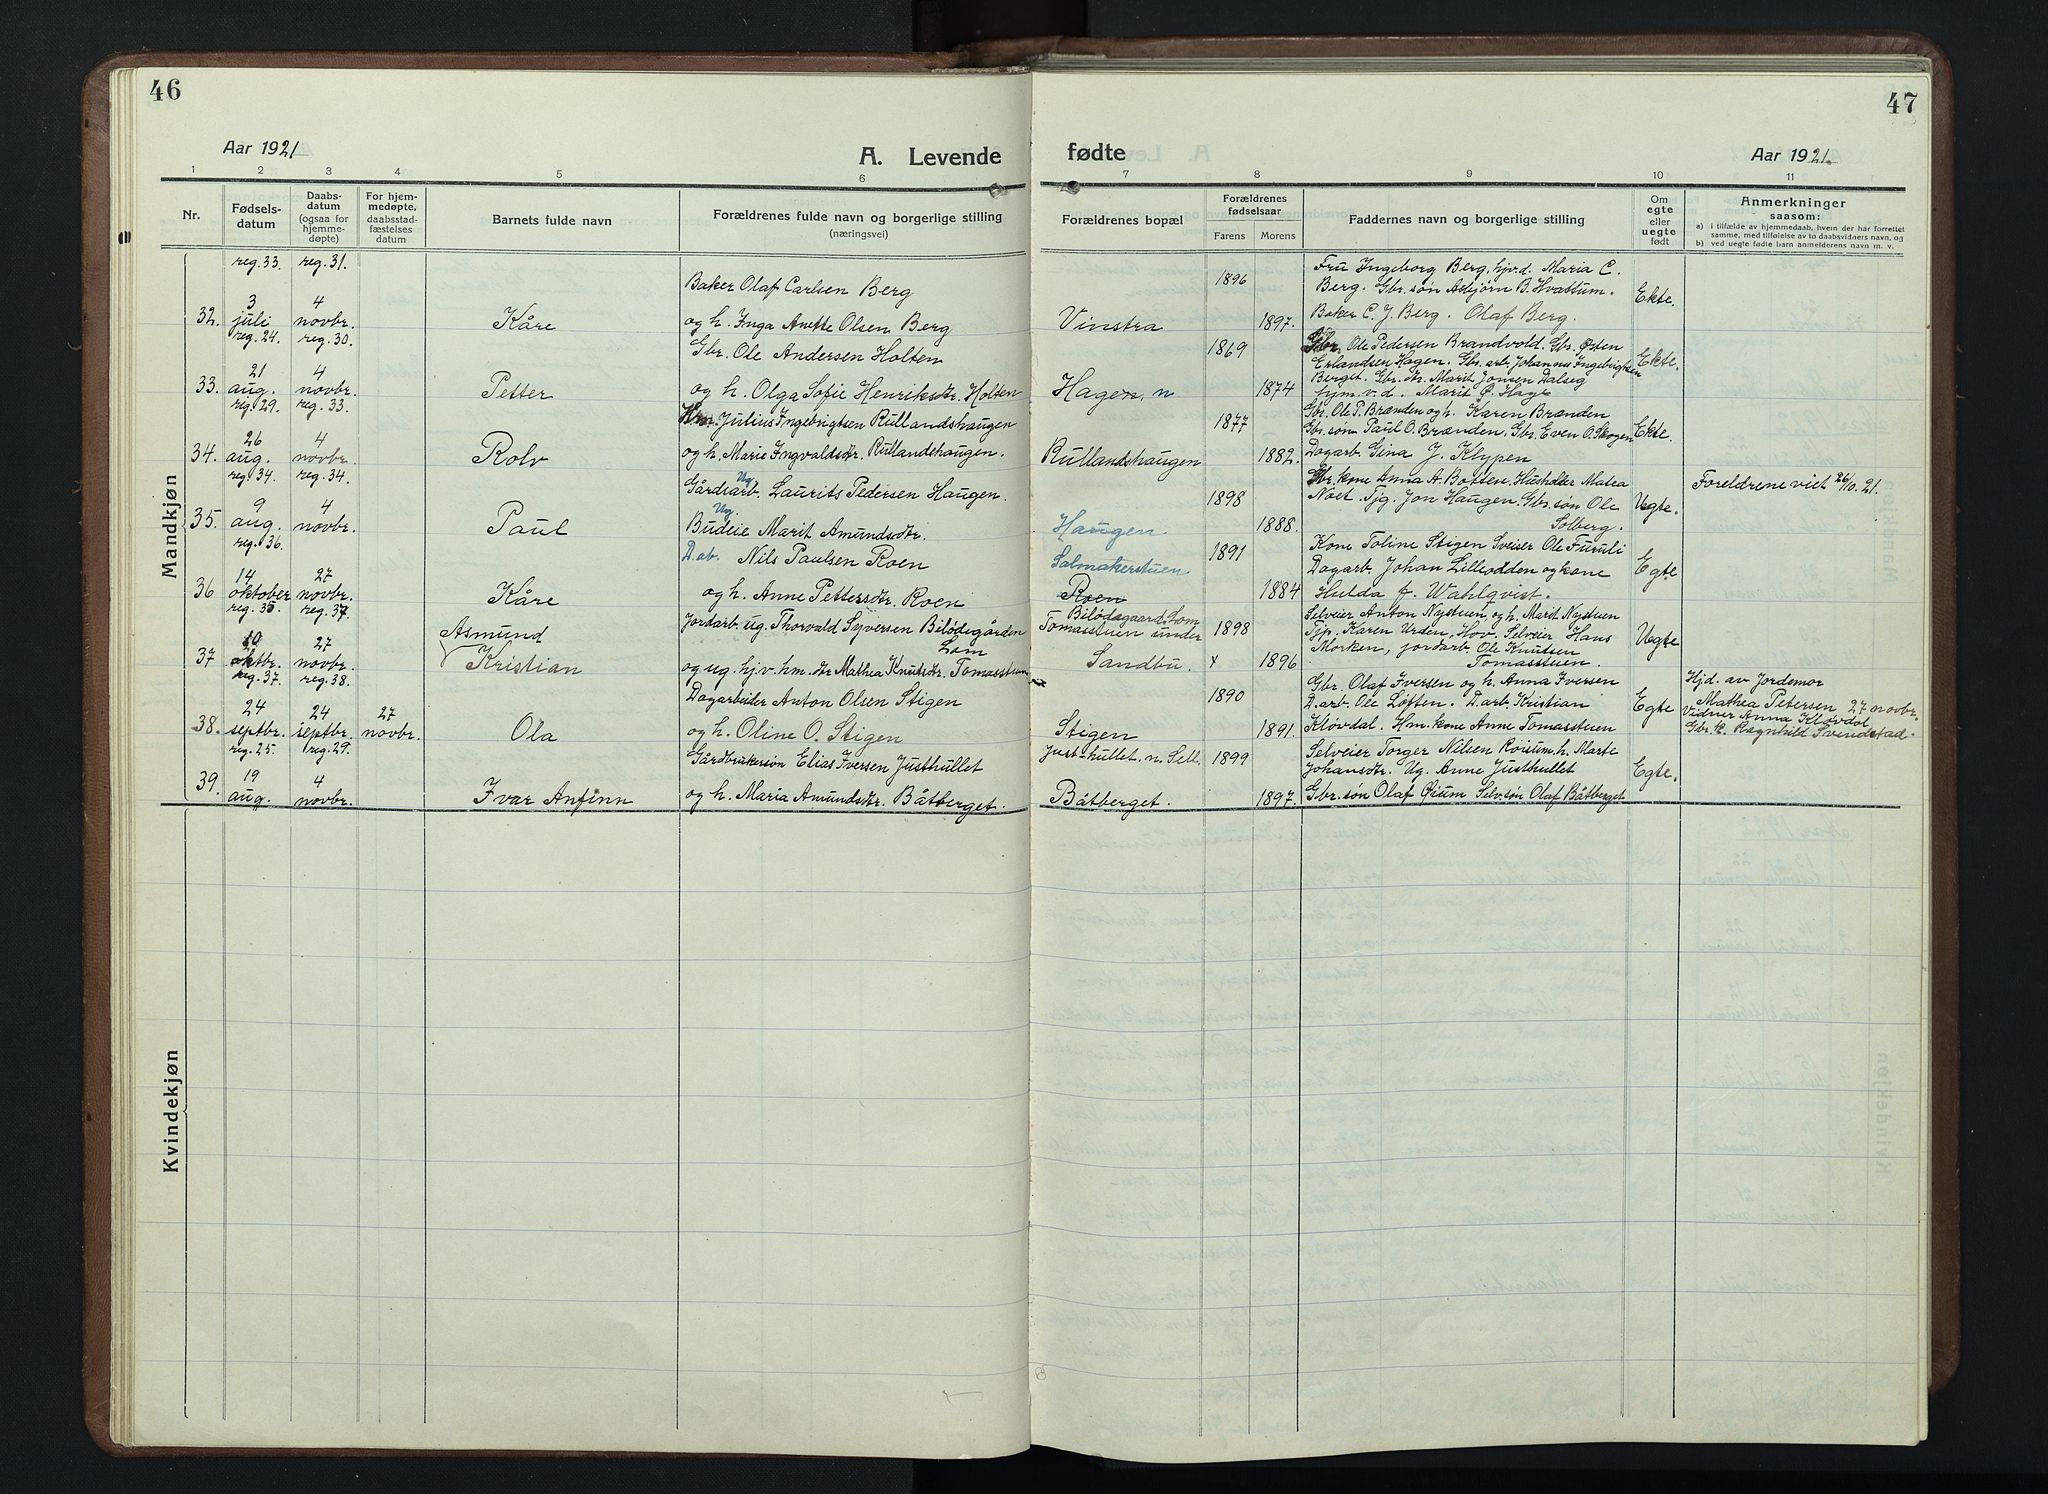 46
47
Aar 1921
A. Levende
fødte
Aar 1921.
1 2 3 4 5 6 7 8 9 10 11
Nr.
Fødsels-
datum
Daabs-
datum
(ogsaa for
hjemme-
døpte)
For hjem-
medøpte,
daabsstad-
fæstelses
datum
Barnets fulde navn
Forældrenes fulde navn og borgerlige stilling
(næringsvei)
Forældrenes bopæl
Forældrenes
fødselsaar
Farens Morens
Faddernes navn og borgerlige stilling
Om
egte
eller
uegte
født
Anmerkninger
saasom:
a) i tilfælde av hjemmedaab, hvem der har forrettet
samme, med tilføielse av to daabsvidners navn, og
b) ved uegte fødte barn anmelderens navn m. v.
Mandkjøn
reg. 33. reg. 31.
32. 3 juli 4 novbr.
Kåre
Baker Olaf Carlsen Berg
og h. Inga Anette Olsen Berg
Vinstra
1896
1897.
Fru Ingeborg Berg, hjv.d. Maria C.
Berg. Gbr. søn Asbjørn B. Hvattum.
Baker C. J. Berg. Olaf Berg.
Ekte.
reg. 24. reg. 30.
33. 21 aug. 4 novbr.
Petter
Gbr. Ole Andersen Holten
og h. Olga Sofie Henriksdtr. Holten
Hagen, n
1869
1874
Gbr. Ole Pedersen Brandvold. Gbr. Østen
Erlandsen Hagen. Gbr. arb. Johannes Ingebrigtsen
Berget. Gbr. dr. Marit Jonsen Dalseg
hjm. v. d. Marit P. Hage
Ekte.
reg. 29. reg. 33.
34. 26 aug. 4 novbr.
Rolv
Hm. Julius Ingebrigtsen Rullandshaugen
og h. Marie Ingvaldsdtr. Rullandshaugen.
Rullandshaugen
1877
1882.
Gbr. Ole P. Brænden og h. Karen Brænden
Gbr. søn Paul O. Brænden. Gbr. Even O. Skogen
Dagarb. Gina J. Klypen
Ekte.
reg. 34. reg. 34.
35. 9 aug. 4 novbr.
Paul
Ug.
Gårdsarb. Laurits Pedersen Haugen.
Ug.
Budeie Marit Amundsdtr.
Haugen
1898
1888.
Gbr. kone Anna A. Botten. Husholder Matea
Noet. Tjg. Jon Haugen. Gbr. søn Ole
Solberg.
Uegte.
Foreldrene viet 26/10. 21.
reg. 36.
36 14 oktober 27 novbr.
Kåre
D. ab. Nils Paulsen Roen
og h. Anne Pettersdtr. Roen
Salmakerstuen
Roen
1891
1884
Kone Toline Stigen Sveiser Ole Furuli
Dagarb. Johan Lilleodden og kone
Hulda f. Wahlqvist.
Egte
reg. 35 reg. 37.
37 10 oktbr. 27 novbr.
Asmund
Kristian
Jordarb. ug. Thorvald Syversen Bilødegården
Lom
og ug. hj. v. hm. dtr. Mathea Knutsdtr. Tomasstuen
Bilødegaard, Lom
Tomasstuen under
Sandbu. x
1898
1896
Selveier Anton Nystuen, og h. Marit Nystuen
Tjp. Karen Urden, Hov. Selveier Hans
Morken, jordarb. Ole Knutsen
Tomasstuen.
Uegte
reg. 37. reg. 38.
38. 24 septbr. 24 septbr. 27 novbr.
Ola
Dagarbeider Anton Olsen Stigen
og h. Oline O. Stigen
Stigen
1890
1891.
Gbr. Olaf Iversen og h. Anna Iversen
D. arb. Ole Løften. D. arb. Kristian
Kløvdal. Hm. kone Anne Tomasstuen
Egte
Hjd. av Jordemor
Mathea Petersen 27 novbr.
Vidner Anna Kløvdal
Gbr. k. Ragnhild Svendstad.
reg. 25. reg. 29.
39. 19 aug. 4 novbr.
Ivar Anfinn
Gårdbrukersøn Elias Iversen Justhullet
og h. Maria Amundsdtr. Båtberget.
Justhullet. n. Sell.
Båtberget.
1899
1897.
Selveier Torger Nilsen Røisum. h. Marte
Johansdtr. Ug. Anne Justhullet
Gbr. søn Olaf Øium Selv. søn Olaf Båtberget
Egte.
Kvindekjøn